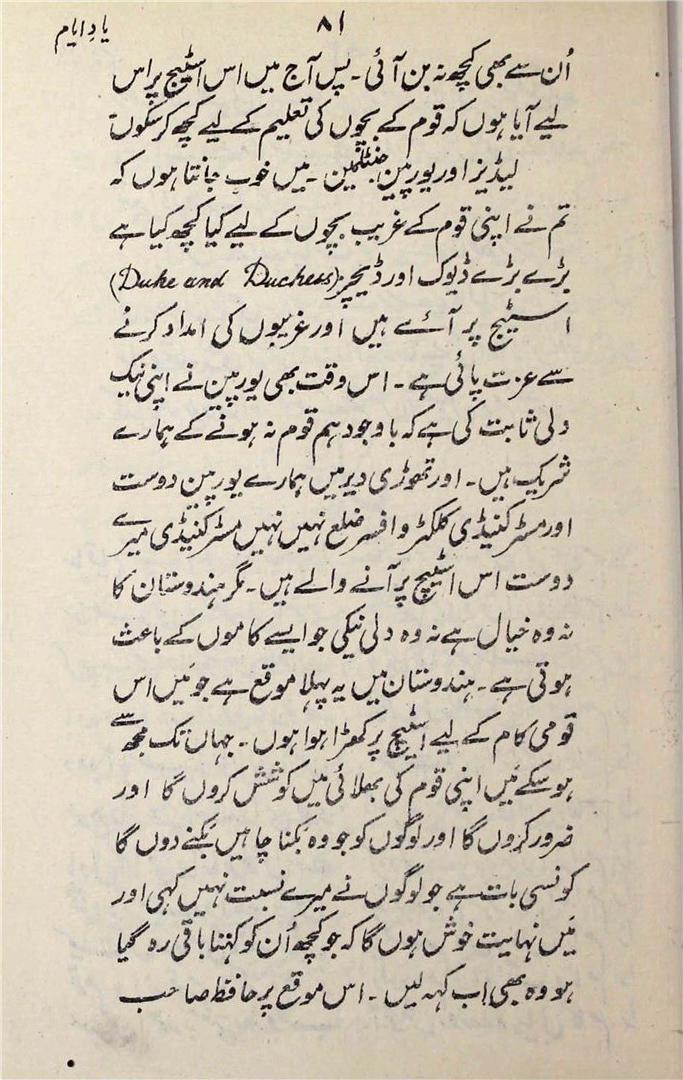 یادِ ایام
۸۱
اُن سے بھی کچھ نہ بن آئی۔ پس آج میں اس اسٹیج پر اس
لیے آیا ہوں کہ قوم کے بچوں کی تعلیم کے لیے کچھ کر سکوں
لیڈیز اور یورپین جنٹلمین۔ میں خوب جانتا ہوں کہ
تم نے اپنی قوم کے غریب بچوں کے لیے کیا کچھ کیا ہے
بڑے بڑے ڈیوک اور ڈیچز (Duke and Duchess)
اسٹیج پر آئے ہیں اور غریبوں کی امداد کرنے
سے عزت پائی ہے۔ اس وقت بھی یورپین نے اپنی نیک
دلی ثابت کی ہے کہ باوجود ہم قوم نہ ہونے کے ہمارے
شریک ہیں۔ اور تھوڑی دیر میں ہمارے یورپین دوست
اور مسٹر کنیڈی کلکٹر و افسر ضلع نہیں نہیں مسٹر کنیڈی میرے
دوست اس اسٹیج پر آنے والے ہیں۔ مگر ہندوستان کا
نہ وہ خیال ہے نہ وہ دلی نیکی جو ایسے کاموں کے باعث
ہوتی ہے۔ ہندوستان میں یہ پہلا موقع ہے جو مَیں اس
قومی کام کے لیے اسٹیج پر کھڑا ہوا ہوں۔ جہاں تک مجھ سے
ہو سکے مَیں اپنی قوم کی بھلائی میں کوشش کروں گا اور
ضرور کروں گا اور لوگوں کو جو وہ بکنا چاہیں بکنے دوں گا
کونسی بات ہے جو لوگوں نے میرے نسبت نہیں کہی اور
مَیں نہایت خوش ہوں گا کہ جو کچھ اُن کو کہنا باقی رہ گیا
ہو وہ بھی اب کہہ لیں۔ اس موقع پر حافظ صاحب